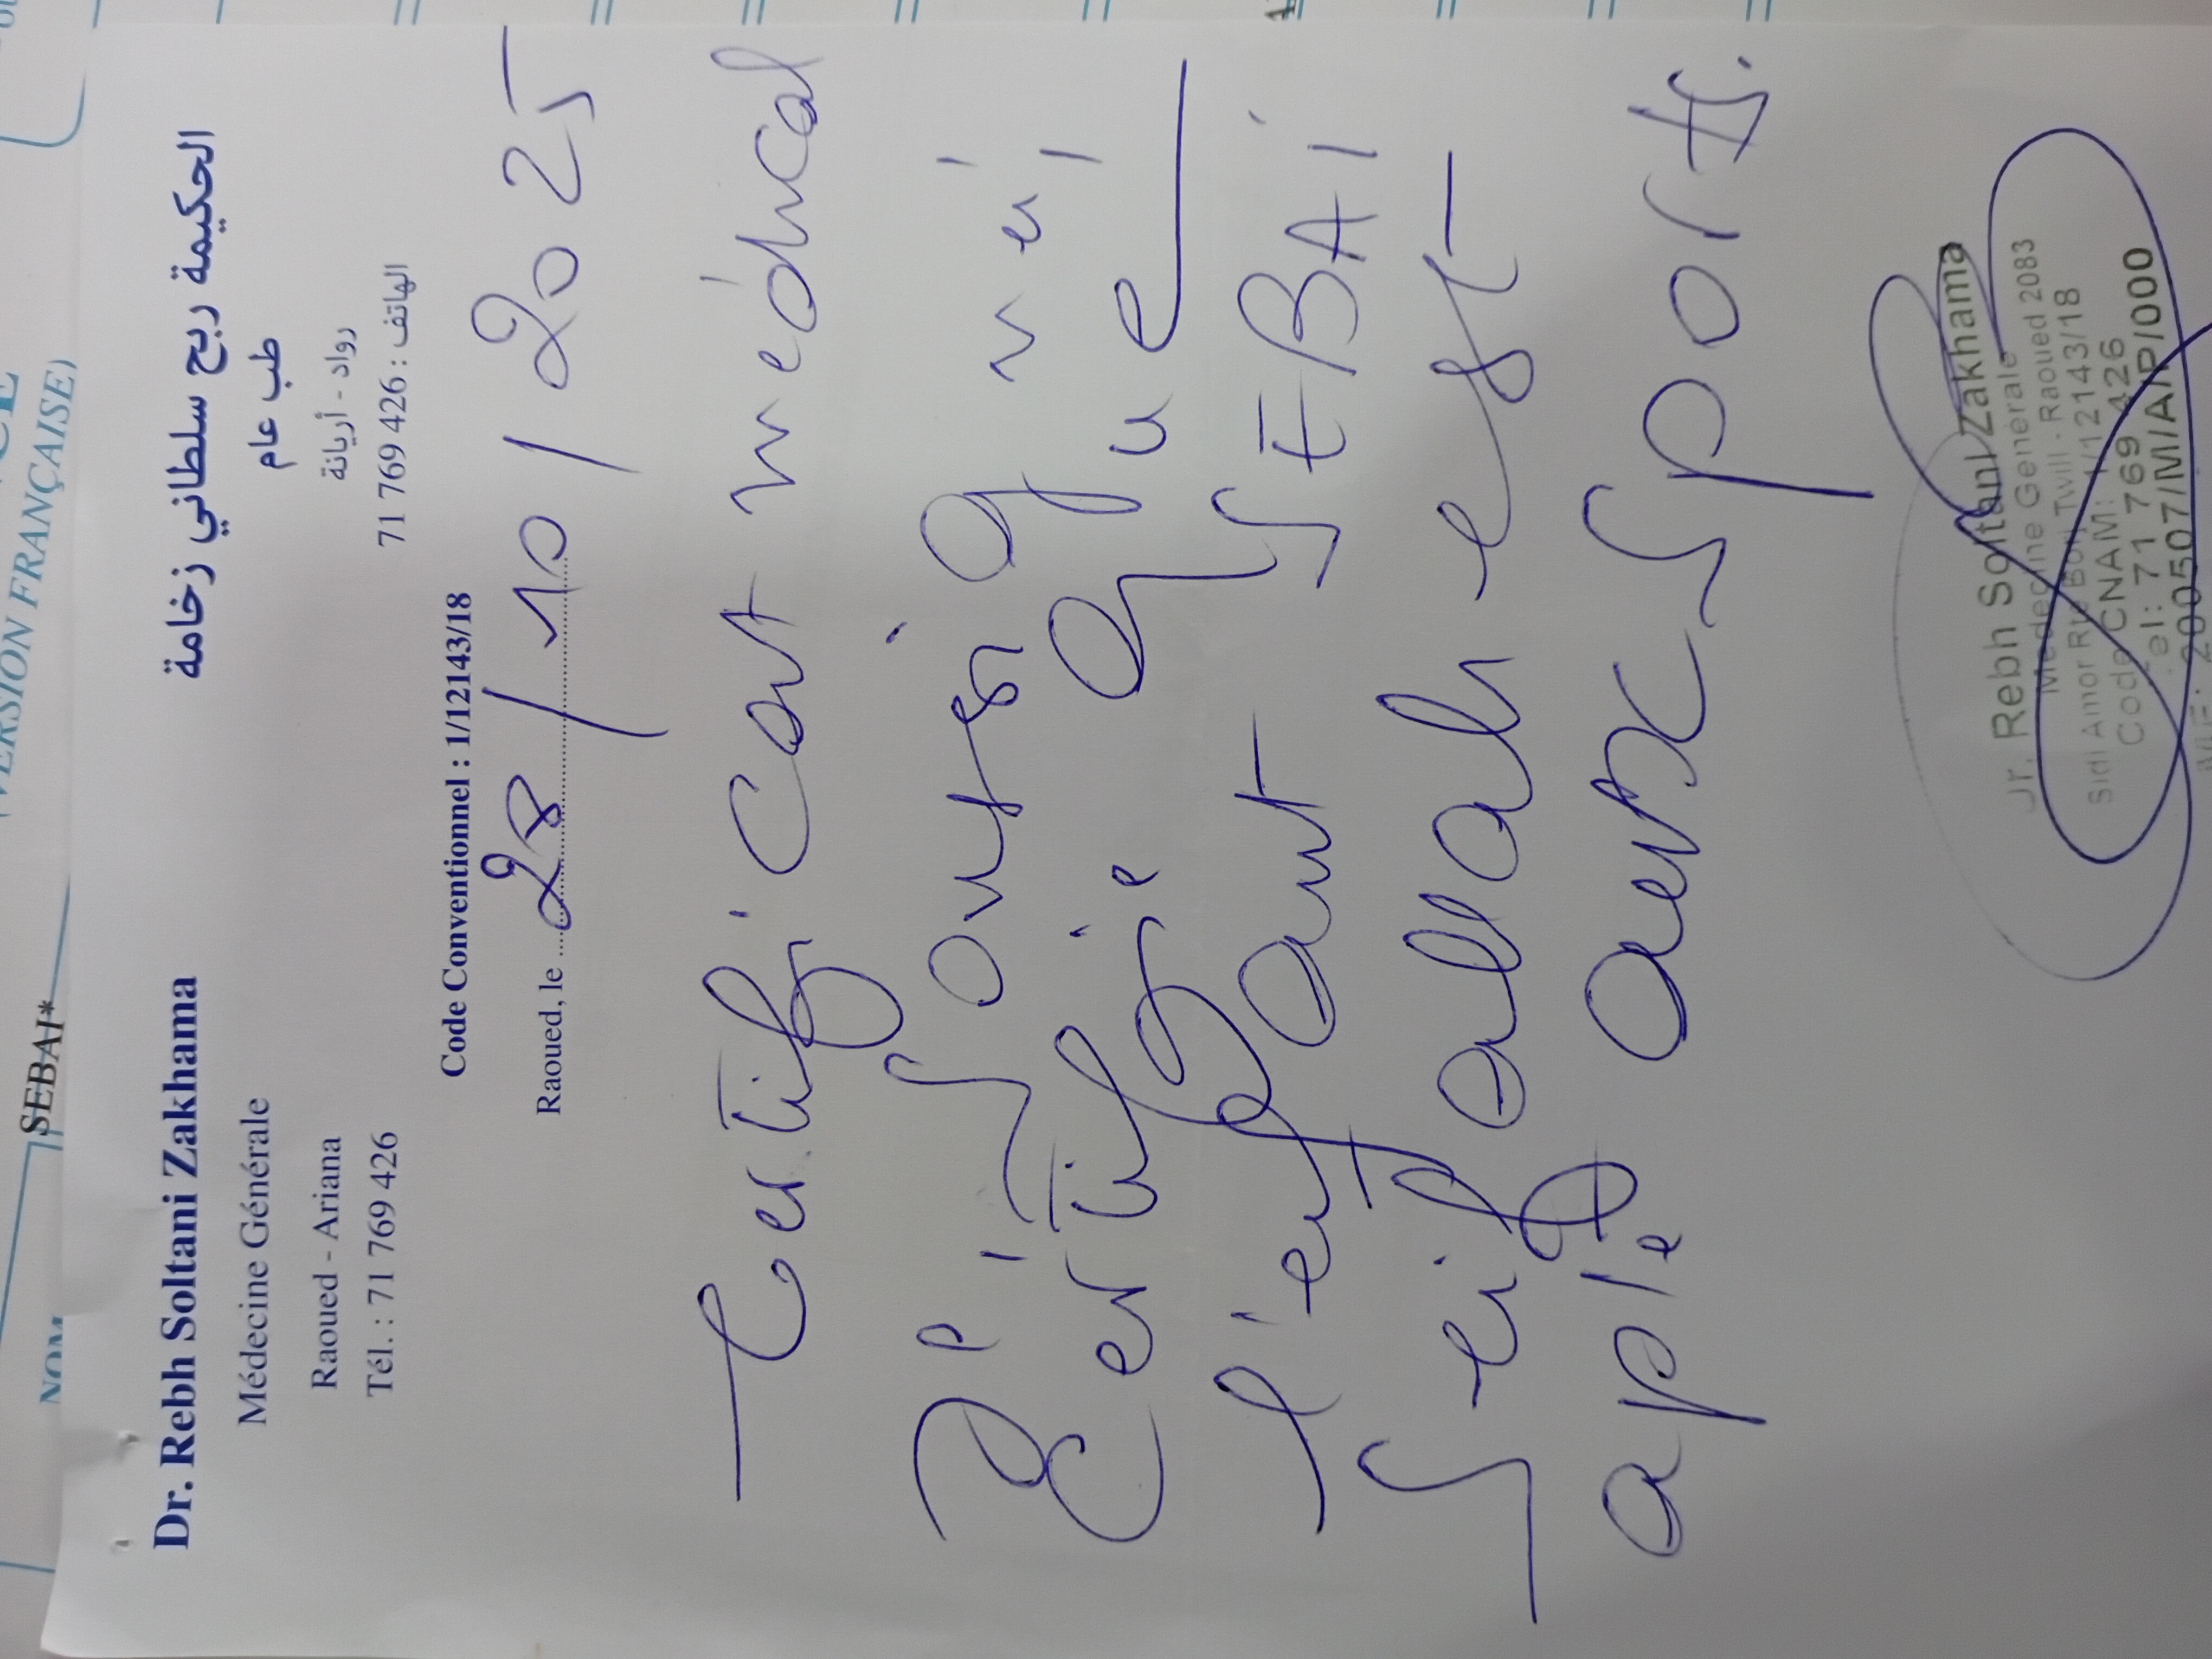 VERSION FRANÇAISE)
NOM
SEBAI*
Dr. Rebh Soltani Zakhama
الحكيمة ربح سلطاني زخامة
Médecine Générale
طب عام
Raoued - Ariana
رواد - أريانة
Tél. : 71 769 426
الهاتف : 426 769 71
Code Conventionnel : 1/12143/18
Raoued, le 28/10/2025
Certificat médical
Je soussigné
certifie que
l'enfant SEBAI
Seifallah est
apte aux sports.
Dr. Rebh Soltani Zakhama
Médecine Générale
Sidi Amor Rte Borj Twill - Raoued 2083
Code CNAM: 1/12143/18
Tel: 71 769 426